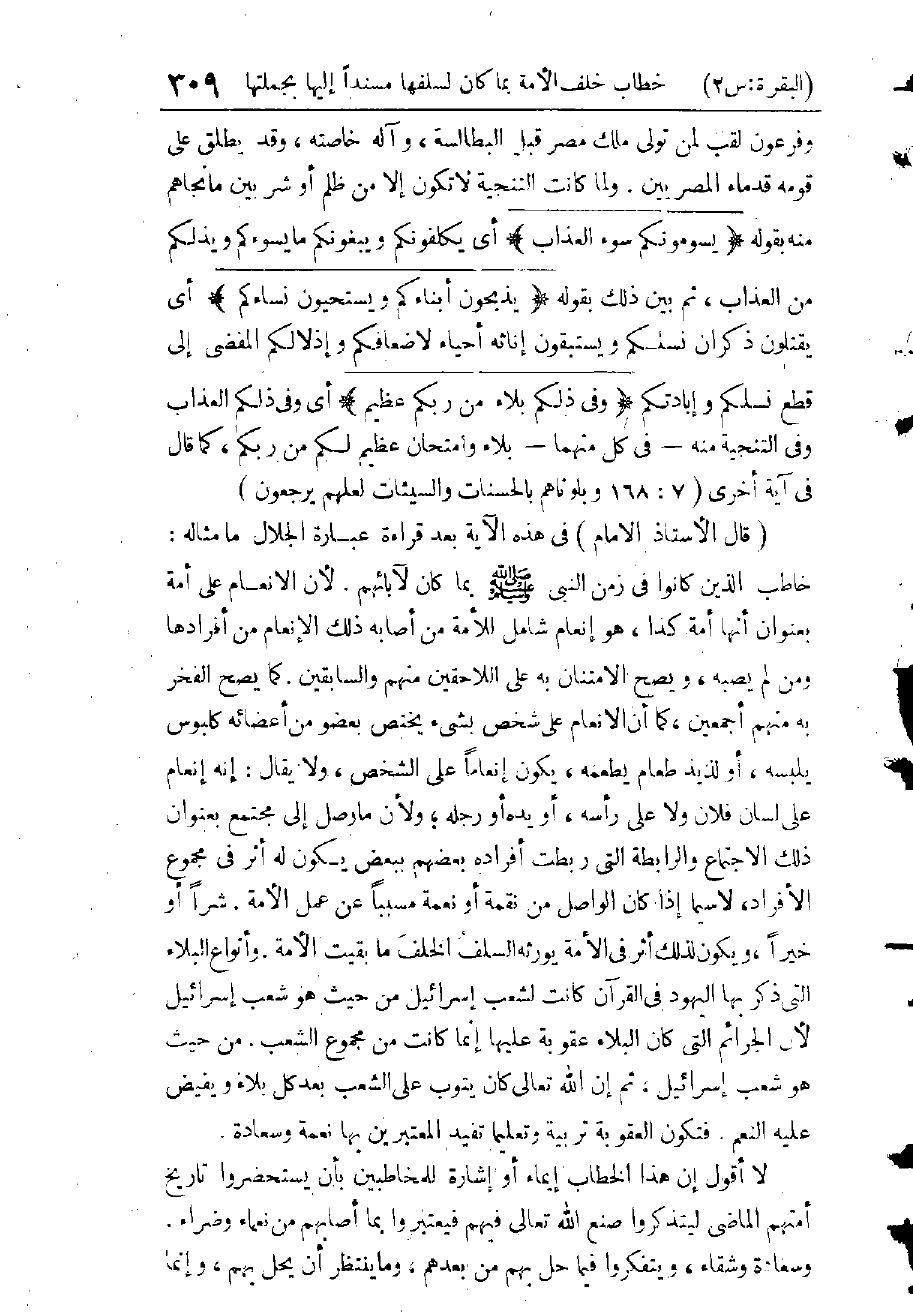 (البقرة:س٢) خطاب خلف الأمة بما كان لسلفها مسنداً إليها بجملتها ٣٠٩
وفرعون لقب لمن تولى ملك مصر قبل البطالسة ، وآله خاصته ، وقد يطلق على
قومه قدماء المصريين . ولما كانت التنجية لاتكون إلا من ظلم أو شر بين مانجاهم
منه بقوله ﴿ يسومونكم سوء العذاب ﴾ أى يكلفونكم ويبغونكم مايسوءكم ويذلكم
من العذاب ، ثم بين ذلك بقوله ﴿ يذبحون أبناءكم ويستحيون نساءكم ﴾ أى
يقتلون ذكران نسلكم ويستبقون إناثه أحياء لاضعافكم وإذلالكم المفضى إلى
قطع نسلكم وإبادتكم ﴿ وفى ذلكم بلاء من ربكم عظيم ﴾ أى وفى ذلكم العذاب
وفى التنجية منه — فى كل منهما — بلاء وامتحان عظيم لكم من ربكم ، كما قال
فى آية أخرى ( ٧ : ١٦٨ وبلوناهم بالحسنات والسيئات لعلهم يرجعون )
( قال الأستاذ الامام ) فى هذه الآية بعد قراءة عبارة الجلال مامثاله :
خاطب الذين كانوا فى زمن النبى ﷺ بما كان لآبائهم . لأن الانعام على أمة
بعنوان أنها أمة كذا ، هو إنعام شامل للأمة من أصابه ذلك الإنعام من أفرادها
ومن لم يصبه ، ويصح الامتنان به على اللاحقين منهم والسابقين . كما يصح الفخر
به منهم أجمعين ، كما أن الانعام على شخص بشىء يختص بعضو من أعضائه كلبوس
يلبسه ، أو لذيذ طعام يطعمه ، يكون إنعاماً على الشخص ، ولا يقال : إنه إنعام
على لسان فلان ولا على رأسه ، أو يده أو رجله ؛ ولأن ماوصل إلى مجتمع بعنوان
ذلك الاجتماع والرابطة التى ربطت أفراده بعضهم ببعض يكون له أثر فى مجموع
الأفراد، لاسيما إذا كان الواصل من نقمة أو نعمة مسبباً عن عمل الأمة . شراً أو
خيراً ، ويكون لذلك أثر فى الأمة يورثه السلفُ الخلفَ ما بقيت الأمة . وأنواع البلاء
التى ذكر بها اليهود فى القرآن كانت لشعب إسرائيل من حيث هو شعب إسرائيل
لأن الجرائم التى كان البلاء عقوبة عليها إنما كانت من مجموع الشعب . من حيث
هو شعب إسرائيل ، ثم إن الله تعالى كان يتوب على الشعب بعد كل بلاء ويفيض
عليه النعم . فتكون العقوبة تربية وتعليما تفيد المعتبرين بها نعمة وسعادة .
لا أقول إن هذا الخطاب إيماء أو إشارة للمخاطبين بأن يستحضروا تاريخ
أمتهم الماضى ليتذكروا صنع الله تعالى فيهم فيعتبروا بما أصابهم من نعماء وضراء .
وسعادة وشقاء ، ويتفكروا فيما حل بهم من بعدهم ، وماينتظر أن يحل بهم ، وإنما